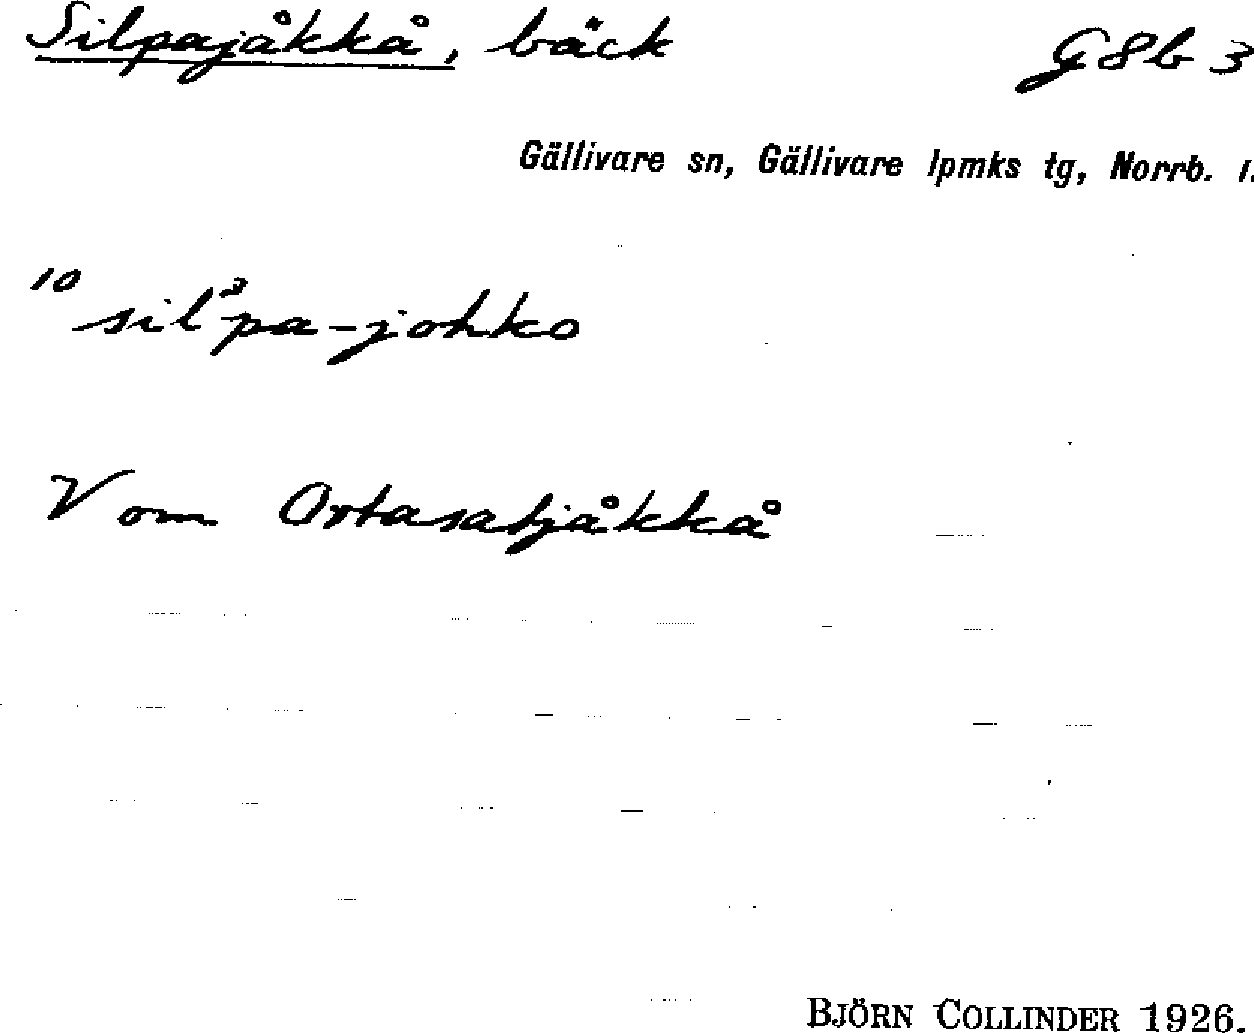 Silpajåkkå, bäck G8b 3
Gällivare sn, Gällivare lpmks tg, Norrb. l.
10 silᵊpa-johko
V om Ortasatjåkkå
BJÖRN COLLINDER 1926.